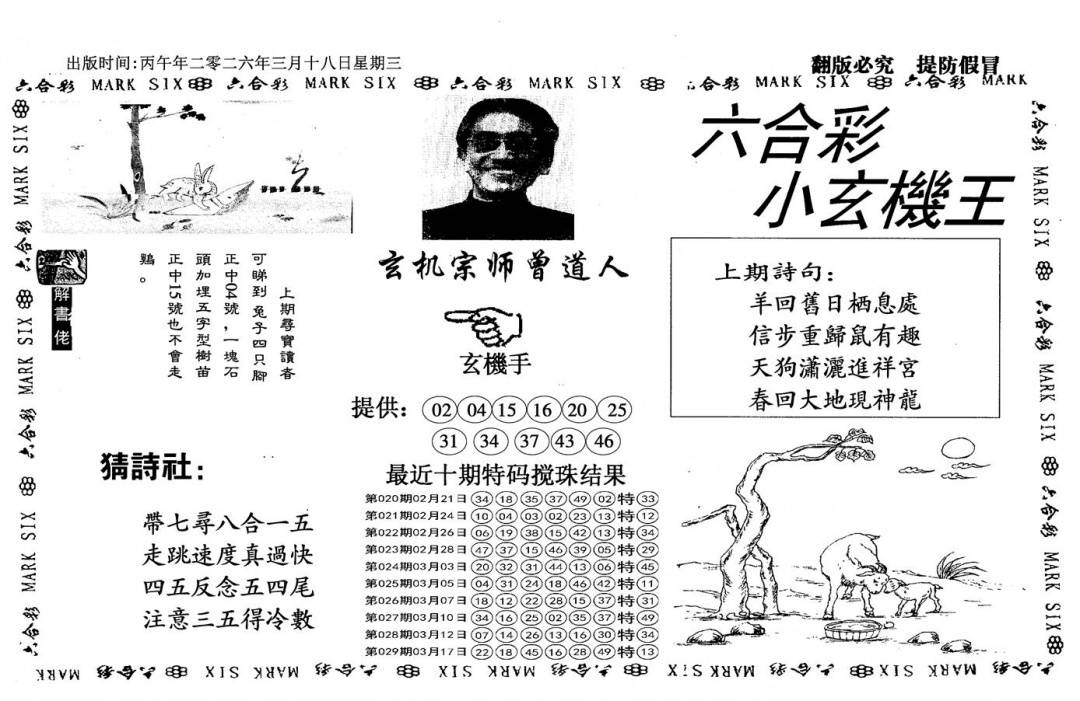 出版时间:丙午年二零二六年三月十八日星期三
翻版必究　提防假冒
六合彩 MARK SIX 六合彩 MARK SIX 六合彩 MARK SIX 六合彩 MARK SIX 六合彩 MARK
六合彩
小玄機王
解書佬
上期尋寶讀者
可睇到兔子四只腳
正中04號，一塊石
頭加埋五字型樹苗
正中15號也不會走
鷄。
玄机宗师曾道人
玄機手
提供：02 04 15 16 20 25
31 34 37 43 46
上期詩句：
羊回舊日栖息處
信步重歸鼠有趣
天狗瀟灑進祥宮
春回大地現神龍
猜詩社：
帶七尋八合一五
走跳速度真過快
四五反念五四尾
注意三五得冷數
最近十期特码搅珠结果
第020期02月21日 34 18 35 37 49 02 特 33
第021期02月24日 10 04 03 02 23 13 特 12
第022期02月26日 06 19 38 15 42 13 特 34
第023期02月28日 47 37 15 46 39 05 特 29
第024期03月03日 20 32 31 44 13 06 特 45
第025期03月05日 04 31 24 18 46 42 特 11
第026期03月07日 18 12 22 28 15 37 特 31
第027期03月10日 34 16 25 02 35 37 特 49
第028期03月12日 07 14 26 13 16 30 特 34
第029期03月17日 22 18 45 16 28 49 特 13
六合彩 MARK SIX 六合彩 MARK SIX 六合彩 MARK SIX 六合彩
六合彩 MARK SIX 六合彩 MARK SIX 六合彩 MARK SIX 六合彩
MARK 六合彩 SIX MARK 六合彩 SIX MARK 六合彩 SIX MARK 六合彩 SIX MARK 六合彩